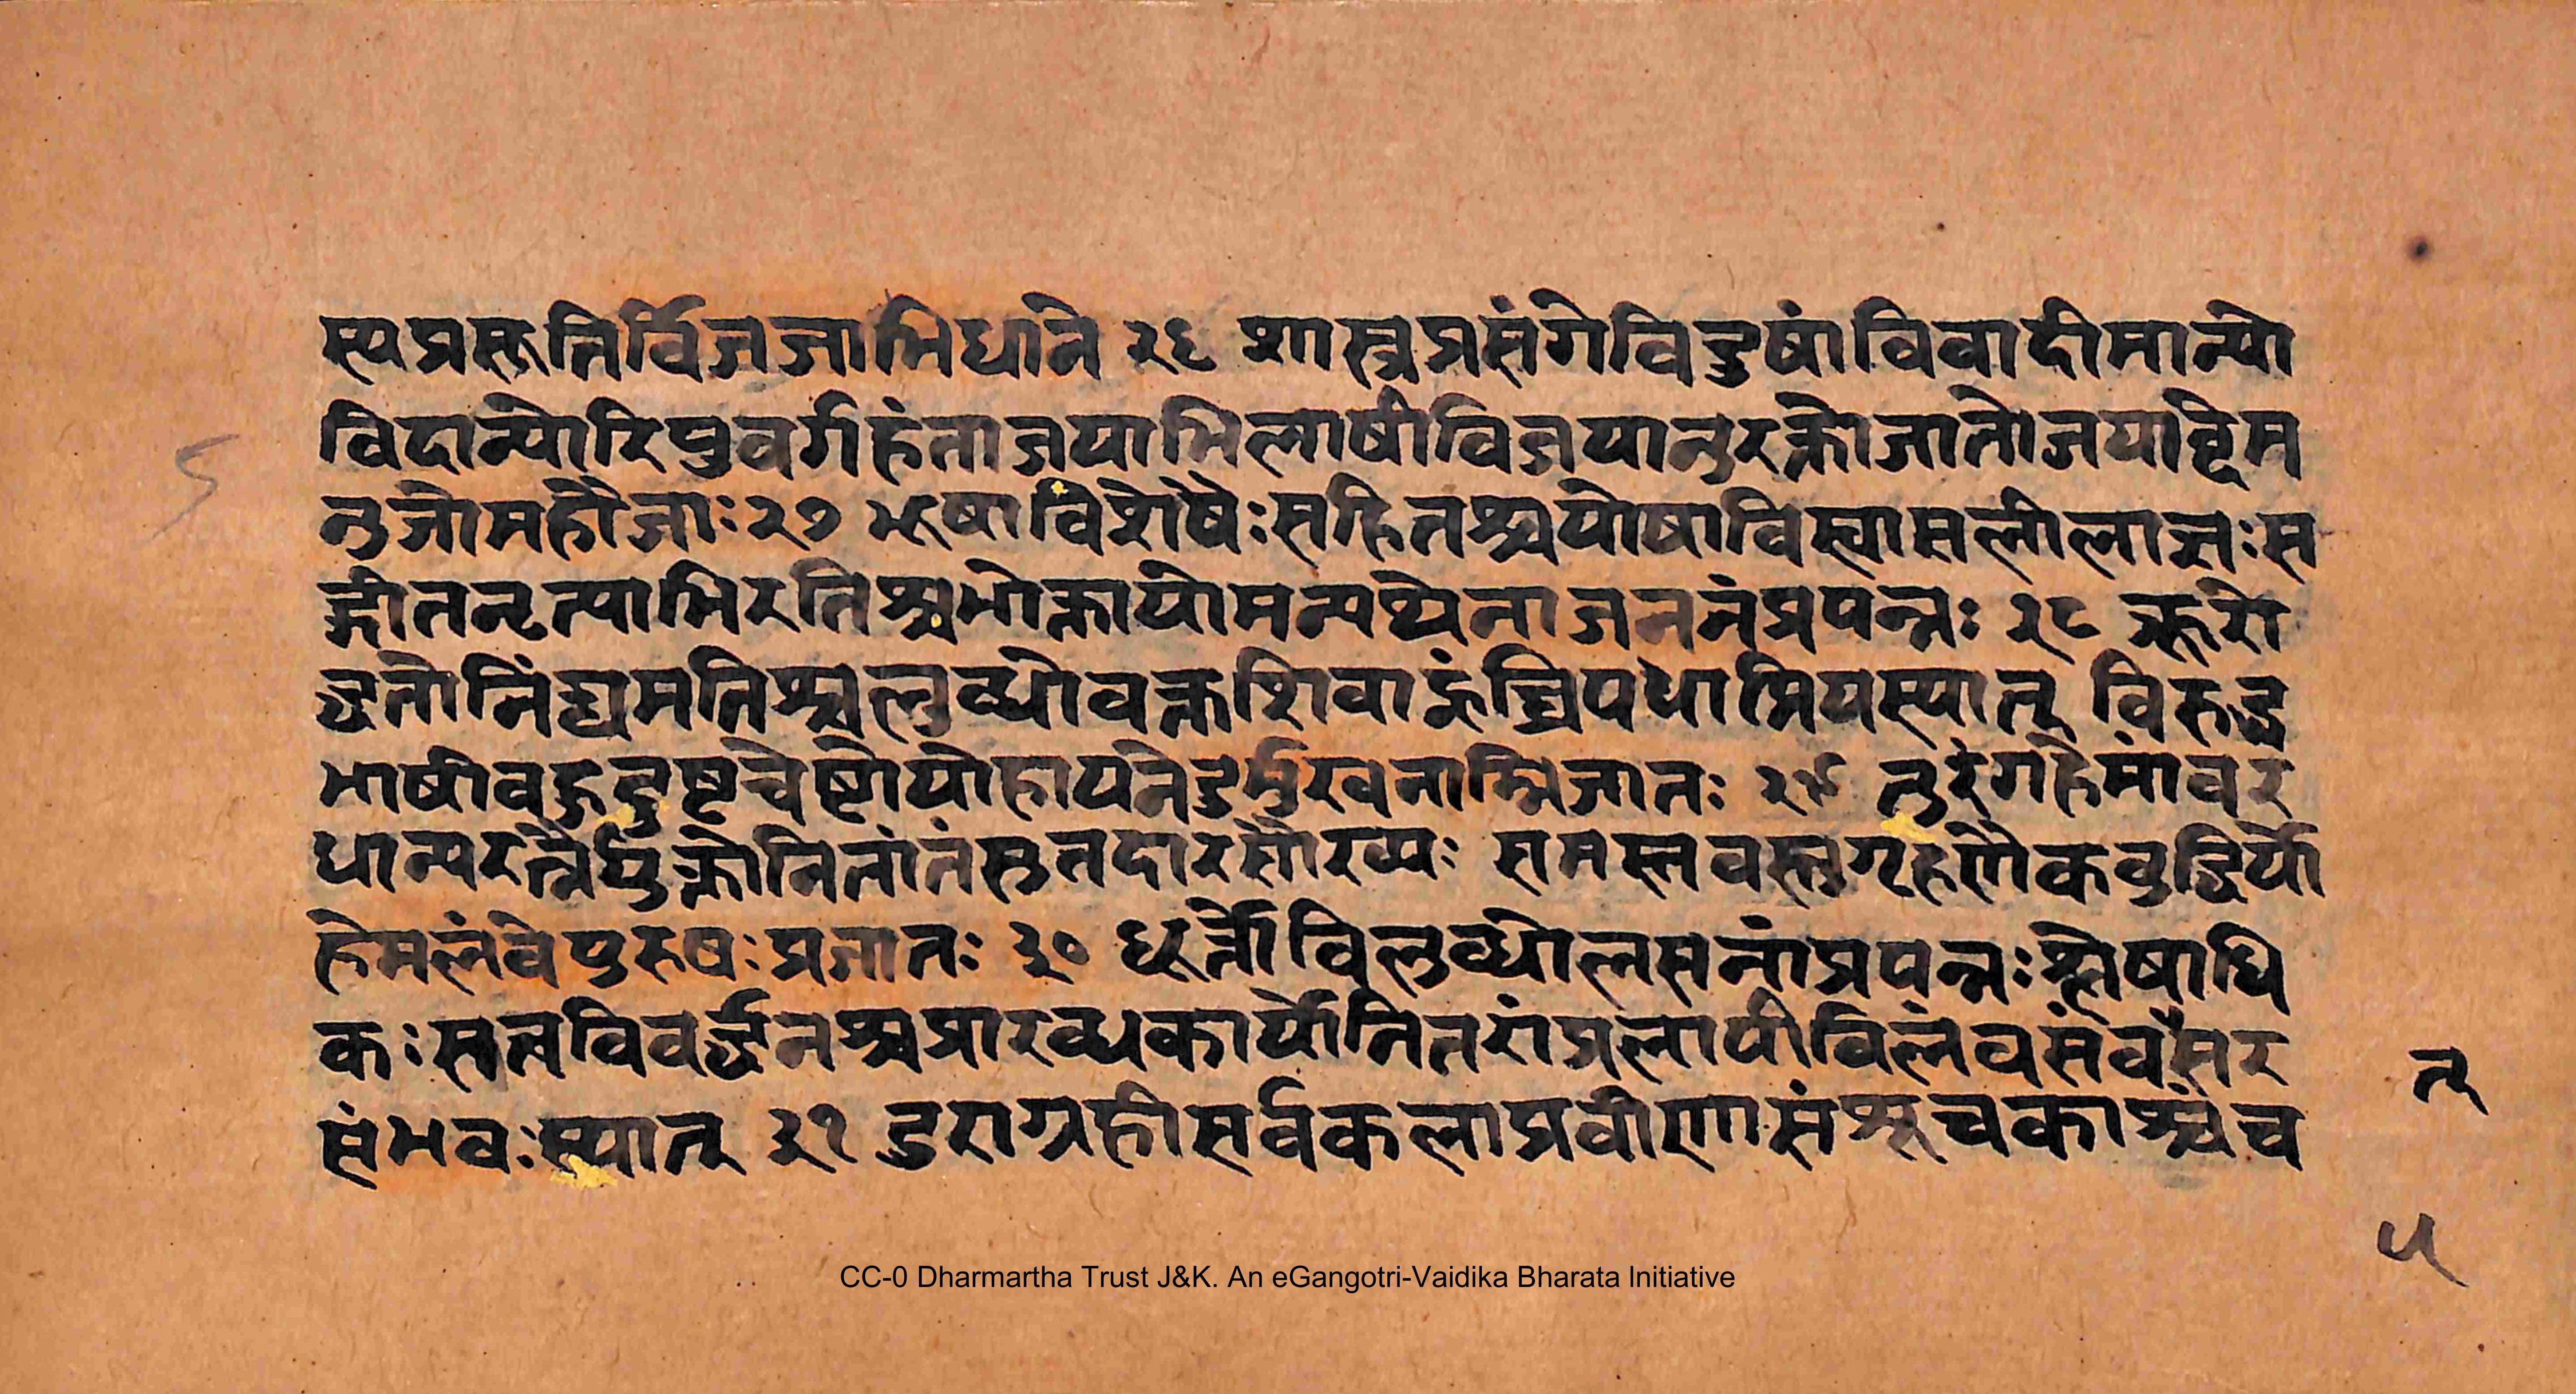 स्यप्रसूतिर्विजजाभिधाने २६ शास्त्रप्रसंगेविदुषांविवादीमान्यो
विदान्योरिपुवर्गहंताजयाभिलाषीविजयानुरक्तोजातोजयाब्देम
नुजोमहौजाः २७ भूषाविशेषैःसहितश्चयोषाविस्यासलीलाज्ञःस
ङ्गीतनृत्याभिरतिश्चभोक्तायोमन्मथेनाजननंप्रपन्नः २८ क्रूरो
द्धतोनिंद्यमतिश्चलुब्धोवक्त
भाषीवहुदुष्टचेष्टोयोहायनेदुर्मुखनाम्निजातः २९ तुरंगहेमांवर
धान्यरत्नैर्युक्तोनितांतंसुतदारसौख्यः समस्तवस्तुगृहणैकवुद्धिर्यो
हेमलंवेपुरुषःप्रजातः ३० धूर्त्तोविलुब्धोलसनांप्रपन्नःश्लेषाधि
कःसत्वविवर्द्धनश्चप्रारब्धकार्योनितरांप्रलापीविलंवसंवसर
त्
संभवःस्यात् ३१ दुराग्रहीसर्वकलाप्रवीणासंश्रूचकाश्चंच
५
CC-0 Dharmartha Trust J&K. An eGangotri-Vaidika Bharata Initiative